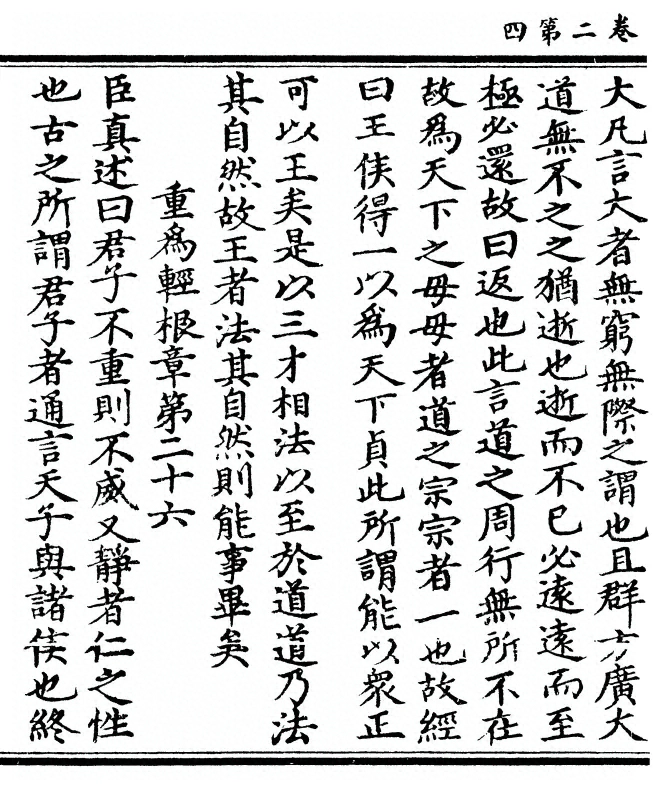 卷二第四
大凡言大者無窮無際之謂也且群方廣大
道無不之之猶逝也逝而不已必遠遠而至
極必還故曰返也此言道之周行無所不在
故爲天下之毋毋者道之宗宗者一也故經
曰王侯得一以爲天下貞此所謂能以衆正
可以王矣是以三才相法以至於道道乃法
其自然故王者法其自然則能事畢矣
重爲輕根章第二十六
臣真述曰君子不重則不威又靜者仁之性
也古之所謂君子者通言天子與諸侯也終